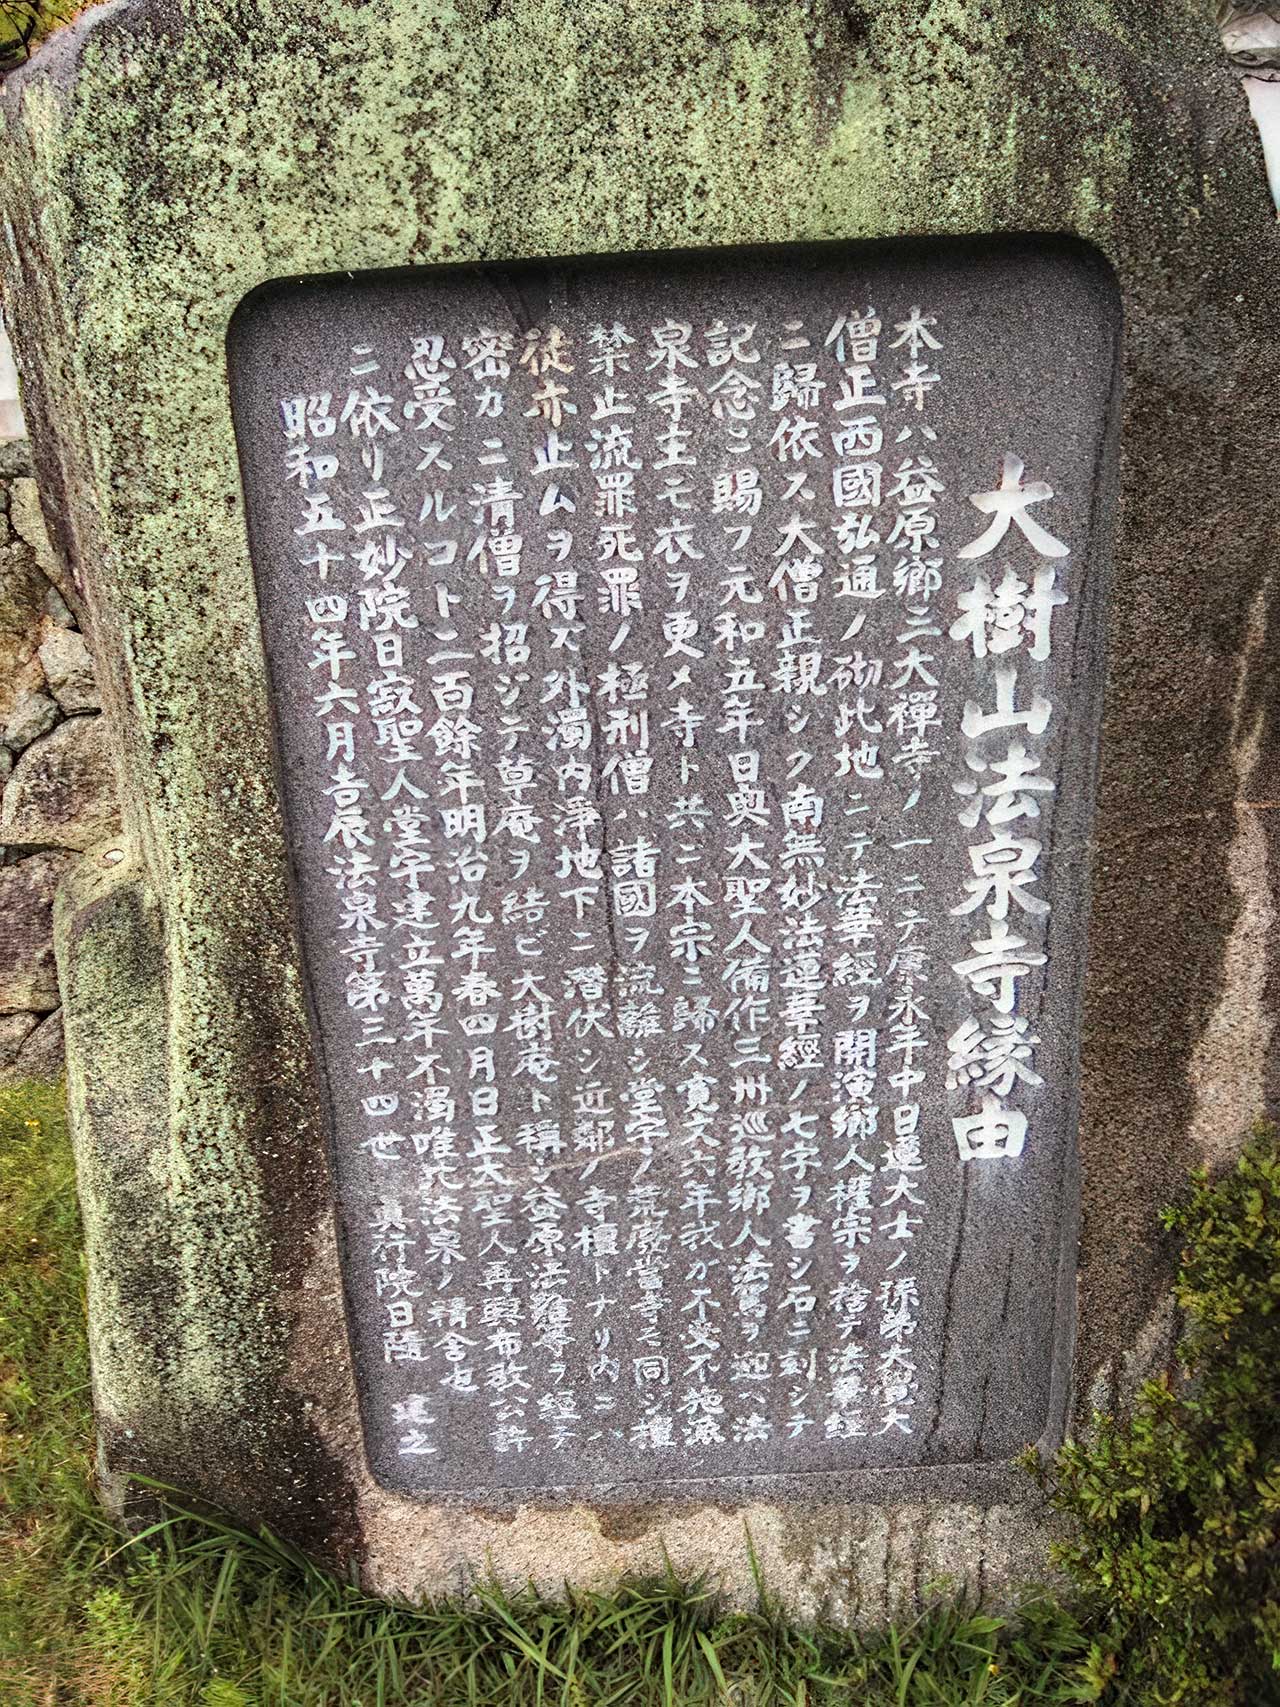 大樹山法泉寺縁由
本寺ハ益原郷ニ大禪寺ノ一ニテ應永年中日蓮大士ノ孫弟大覺大
僧正西國弘通ノ砌此地ニテ法華經ヲ開演郷人權宗ヲ捨テ法華經
ニ歸依ス大僧正親シク南無妙法蓮華經ノ七字ヲ書シ石ニ刻シテ
記念ニ賜フ元和五年日奥大聖人備作三州巡教郷人法筵ヲ迎ベ法
泉寺主モ衣ヲ更メ寺ト共ニ本宗ニ歸ス寛文六年我ガ不受不施派
禁止流罪死罪ノ極刑僧ハ諸國ヲ流離シ堂宇ノ荒廢當寺モ同シ檀
徒亦止ムヲ得ズ外濁内淨地下ニ潜伏シ近鄰ノ寺檀トナリ内ニハ
密カニ清僧ヲ招ジテ草庵ヲ結ビ大樹庵ト稱シ益原法難等ヲ經テ
忍受スルコト二百餘年明治九年春四月日正大聖人再興布教公許
ニ依リ正妙院日寂聖人堂宇建立萬年不濁唯元法泉ノ精舎也
昭和五十四年六月吉辰法泉寺第三十四世 真行院日隆 建之